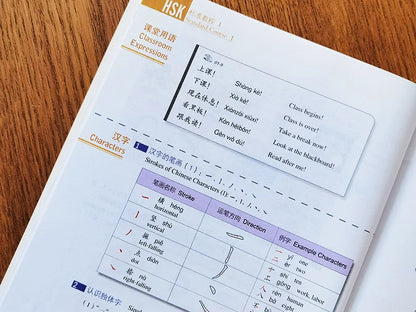 HSK 标准教程 1
Standard Course 1
课堂用语
Classroom
Expressions
上课! Shàng kè! Class begins!
下课! Xià kè! Class is over!
现在休息! Xiànzài xiūxi! Take a break now!
看黑板! Kàn hēibǎn! Look at the blackboard!
跟我读! Gēn wǒ dú! Read after me!
汉字
Characters
1 汉字的笔画(1):一、丨、丿、丶、㇏
Strokes of Chinese Characters (1): 一、丨、丿、丶、㇏
笔画名称 Stroke 运笔方向 Direction 例字 Example Characters
一 横 héng horizontal 一 yī one
二 èr two
丨 竖 shù vertical 十 shí ten
工 gōng work, labor
丿 撇 piě left-falling 人 rén human
八 bā eight
丶 点 diǎn dot
㇏ 捺 nà right-falling
2 认识独体字